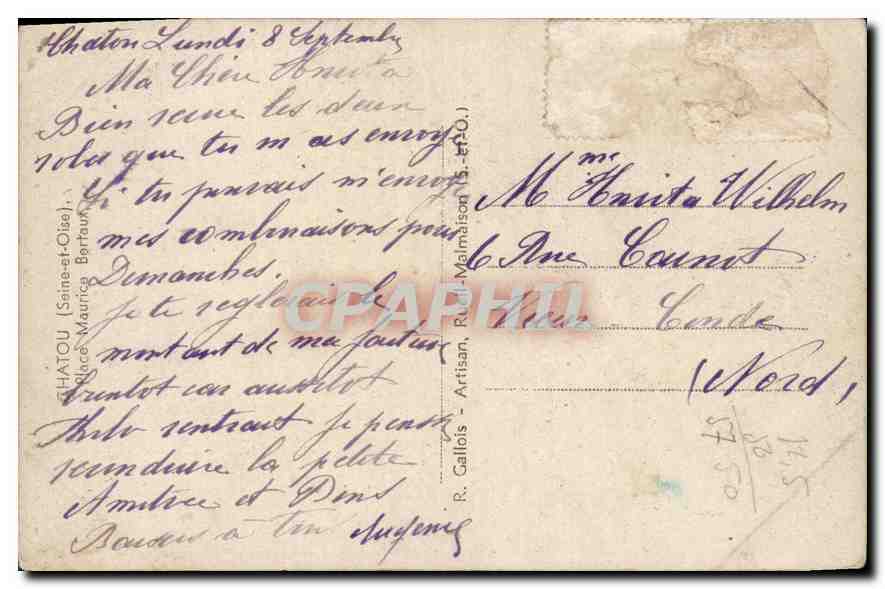 Chatou Lundi 8 Septembre
Ma Chère
Bien reçue les deux
robes que tu m as envoyé
Si tu pouvais m'envoyé
mes combinaisons pour
Dimanches.
Je te reglerais le
montant de ma facture
bientot car aussitot
rentrant je pense
reconduire la petite
Amitiée et Bons
Baisers à tous
CHATOU (Seine-et-Oise).
Place Maurice Bertaux
R. Gallois - Artisan, Rueil-Malmaison (S.-et-O.)
Mme Wilhelm
6 Rue Carnot
Vieux Condé
(Nord,
57 50
25
CPAPHIL